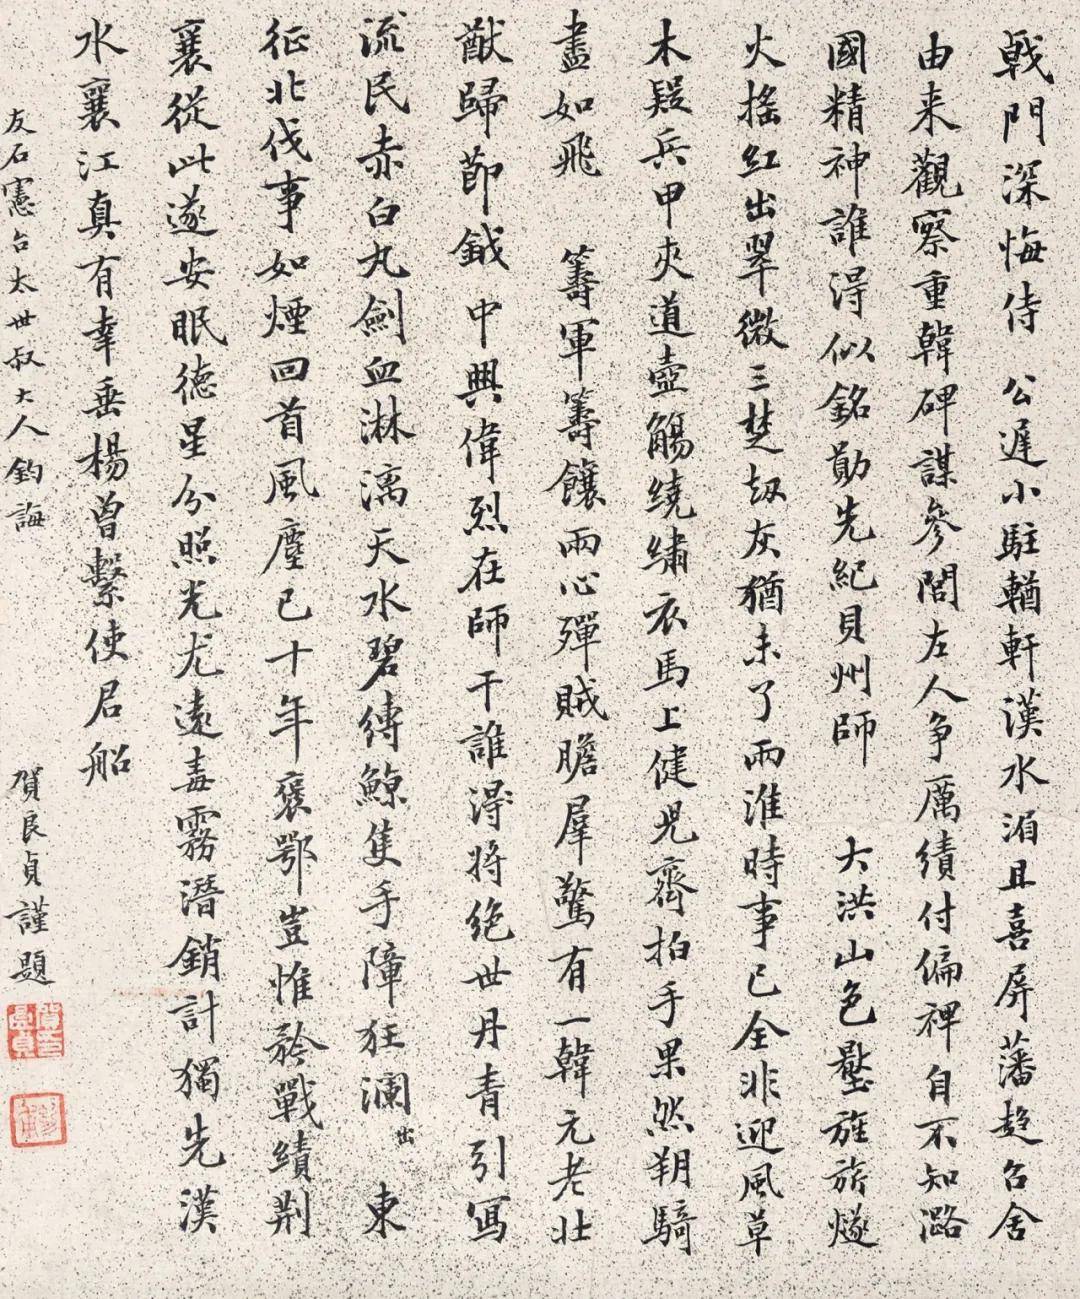 戟門深悔侍 公遲小駐輶軒漢水湄且喜屏藩趍召舍
由来觀察重韓碑謀參閤左人争厲績付偏裨自不知潞
國精神誰淂似銘勛先紀貝州師 大洪山色壓旌旂燧
火摇紅出翠微三楚劫灰猶未了兩淮時事已全非迎風草
木疑兵甲夾道壺觴繞繡衣馬上健児齊拍手果然朔騎
盡如飛 籌軍籌饟兩心殫賊膽羣驚有一韓元老壯
猷歸節鉞中興偉烈在師干誰淂將絶世丹青引寫
流民赤白丸劍血淋漓天水碧縛鯨隻手障狂瀾出 東
征北伐事如煙回首風塵已十年褒鄂豈惟矜戰績荆
襄從此遂安眠德星分照光尤遠毒霧潛銷計獨先漢
水襄江真有幸垂楊曾繫使君船
友石憲台太世叔大人鈞誨
賀良貞謹題